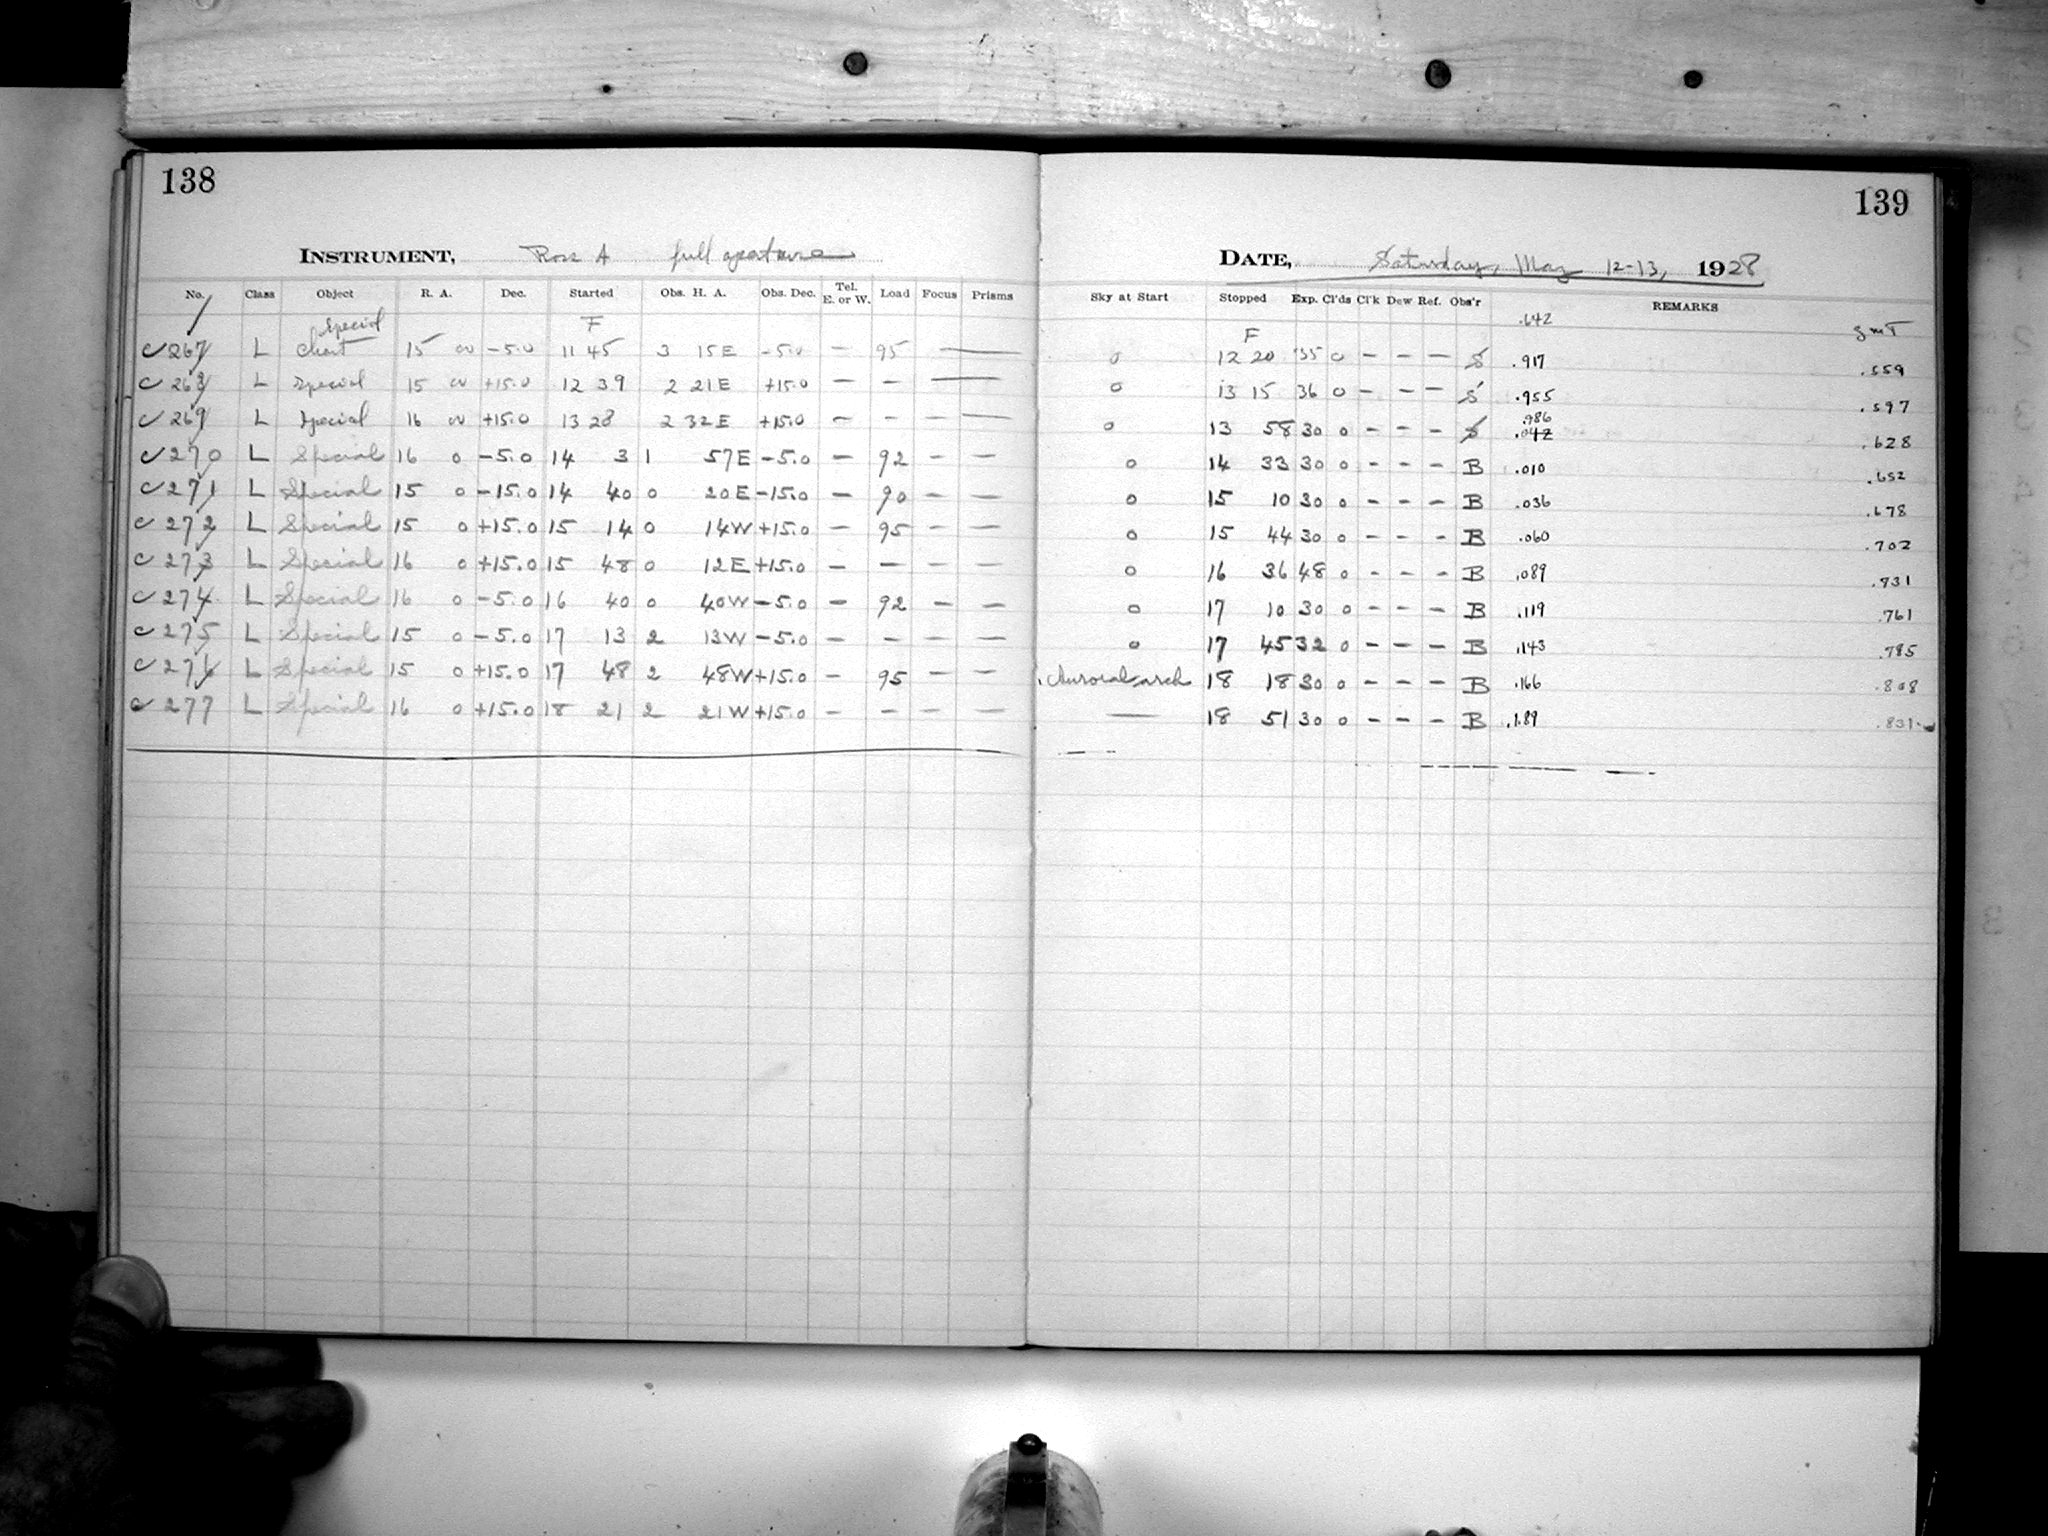 138
INSTRUMENT, Ross A full aperture
No. Class Object R. A. Dec. Started Obs. H. A. Obs. Dec. Tel. E. or W. Load Focus Prisms
Special F
267 L Chart 15 00 -5.0 11 45 3 15E -5.0 — 95 —
268 L Special 15 00 +15.0 12 39 2 21E +15.0 — — —
269 L Special 16 00 +15.0 13 28 2 32E +15.0 — — — —
270 L Special 16 0 -5.0 14 3 1 57E -5.0 — 92 — —
271 L Special 15 0 -15.0 14 40 0 20E -15.0 — 90 — —
272 L Special 15 0 +15.0 15 14 0 14W +15.0 — 95 — —
273 L Special 16 0 +15.0 15 48 0 12E +15.0 — — — —
274 L Special 16 0 -5.0 16 40 0 40W -5.0 — 92 — —
275 L Special 15 0 -5.0 17 13 2 13W -5.0 — — — —
276 L Special 15 0 +15.0 17 48 2 48W +15.0 — 95 — —
277 L Special 16 0 +15.0 18 21 2 21W +15.0 — — — —
139
DATE, Saturday, May 12-13, 1928
Sky at Start Stopped Exp. Cl'ds Cl'k Dew Ref. Obs'r REMARKS
F .642 GMT
0 12 20 35 0 — — — S .917 .559
0 13 15 36 0 — — — S .955 .597
.986
0 13 58 30 0 — — — S .042 .628
0 14 33 30 0 — — — B .010 .652
0 15 10 30 0 — — — B .036 .678
0 15 44 30 0 — — — B .060 .702
0 16 36 48 0 — — — B .089 .731
0 17 10 30 0 — — — B .119 .761
0 17 45 32 0 — — — B .143 .785
Auroral arch 18 18 30 0 — — — B .166 .808
— 18 51 30 0 — — — B .189 .831